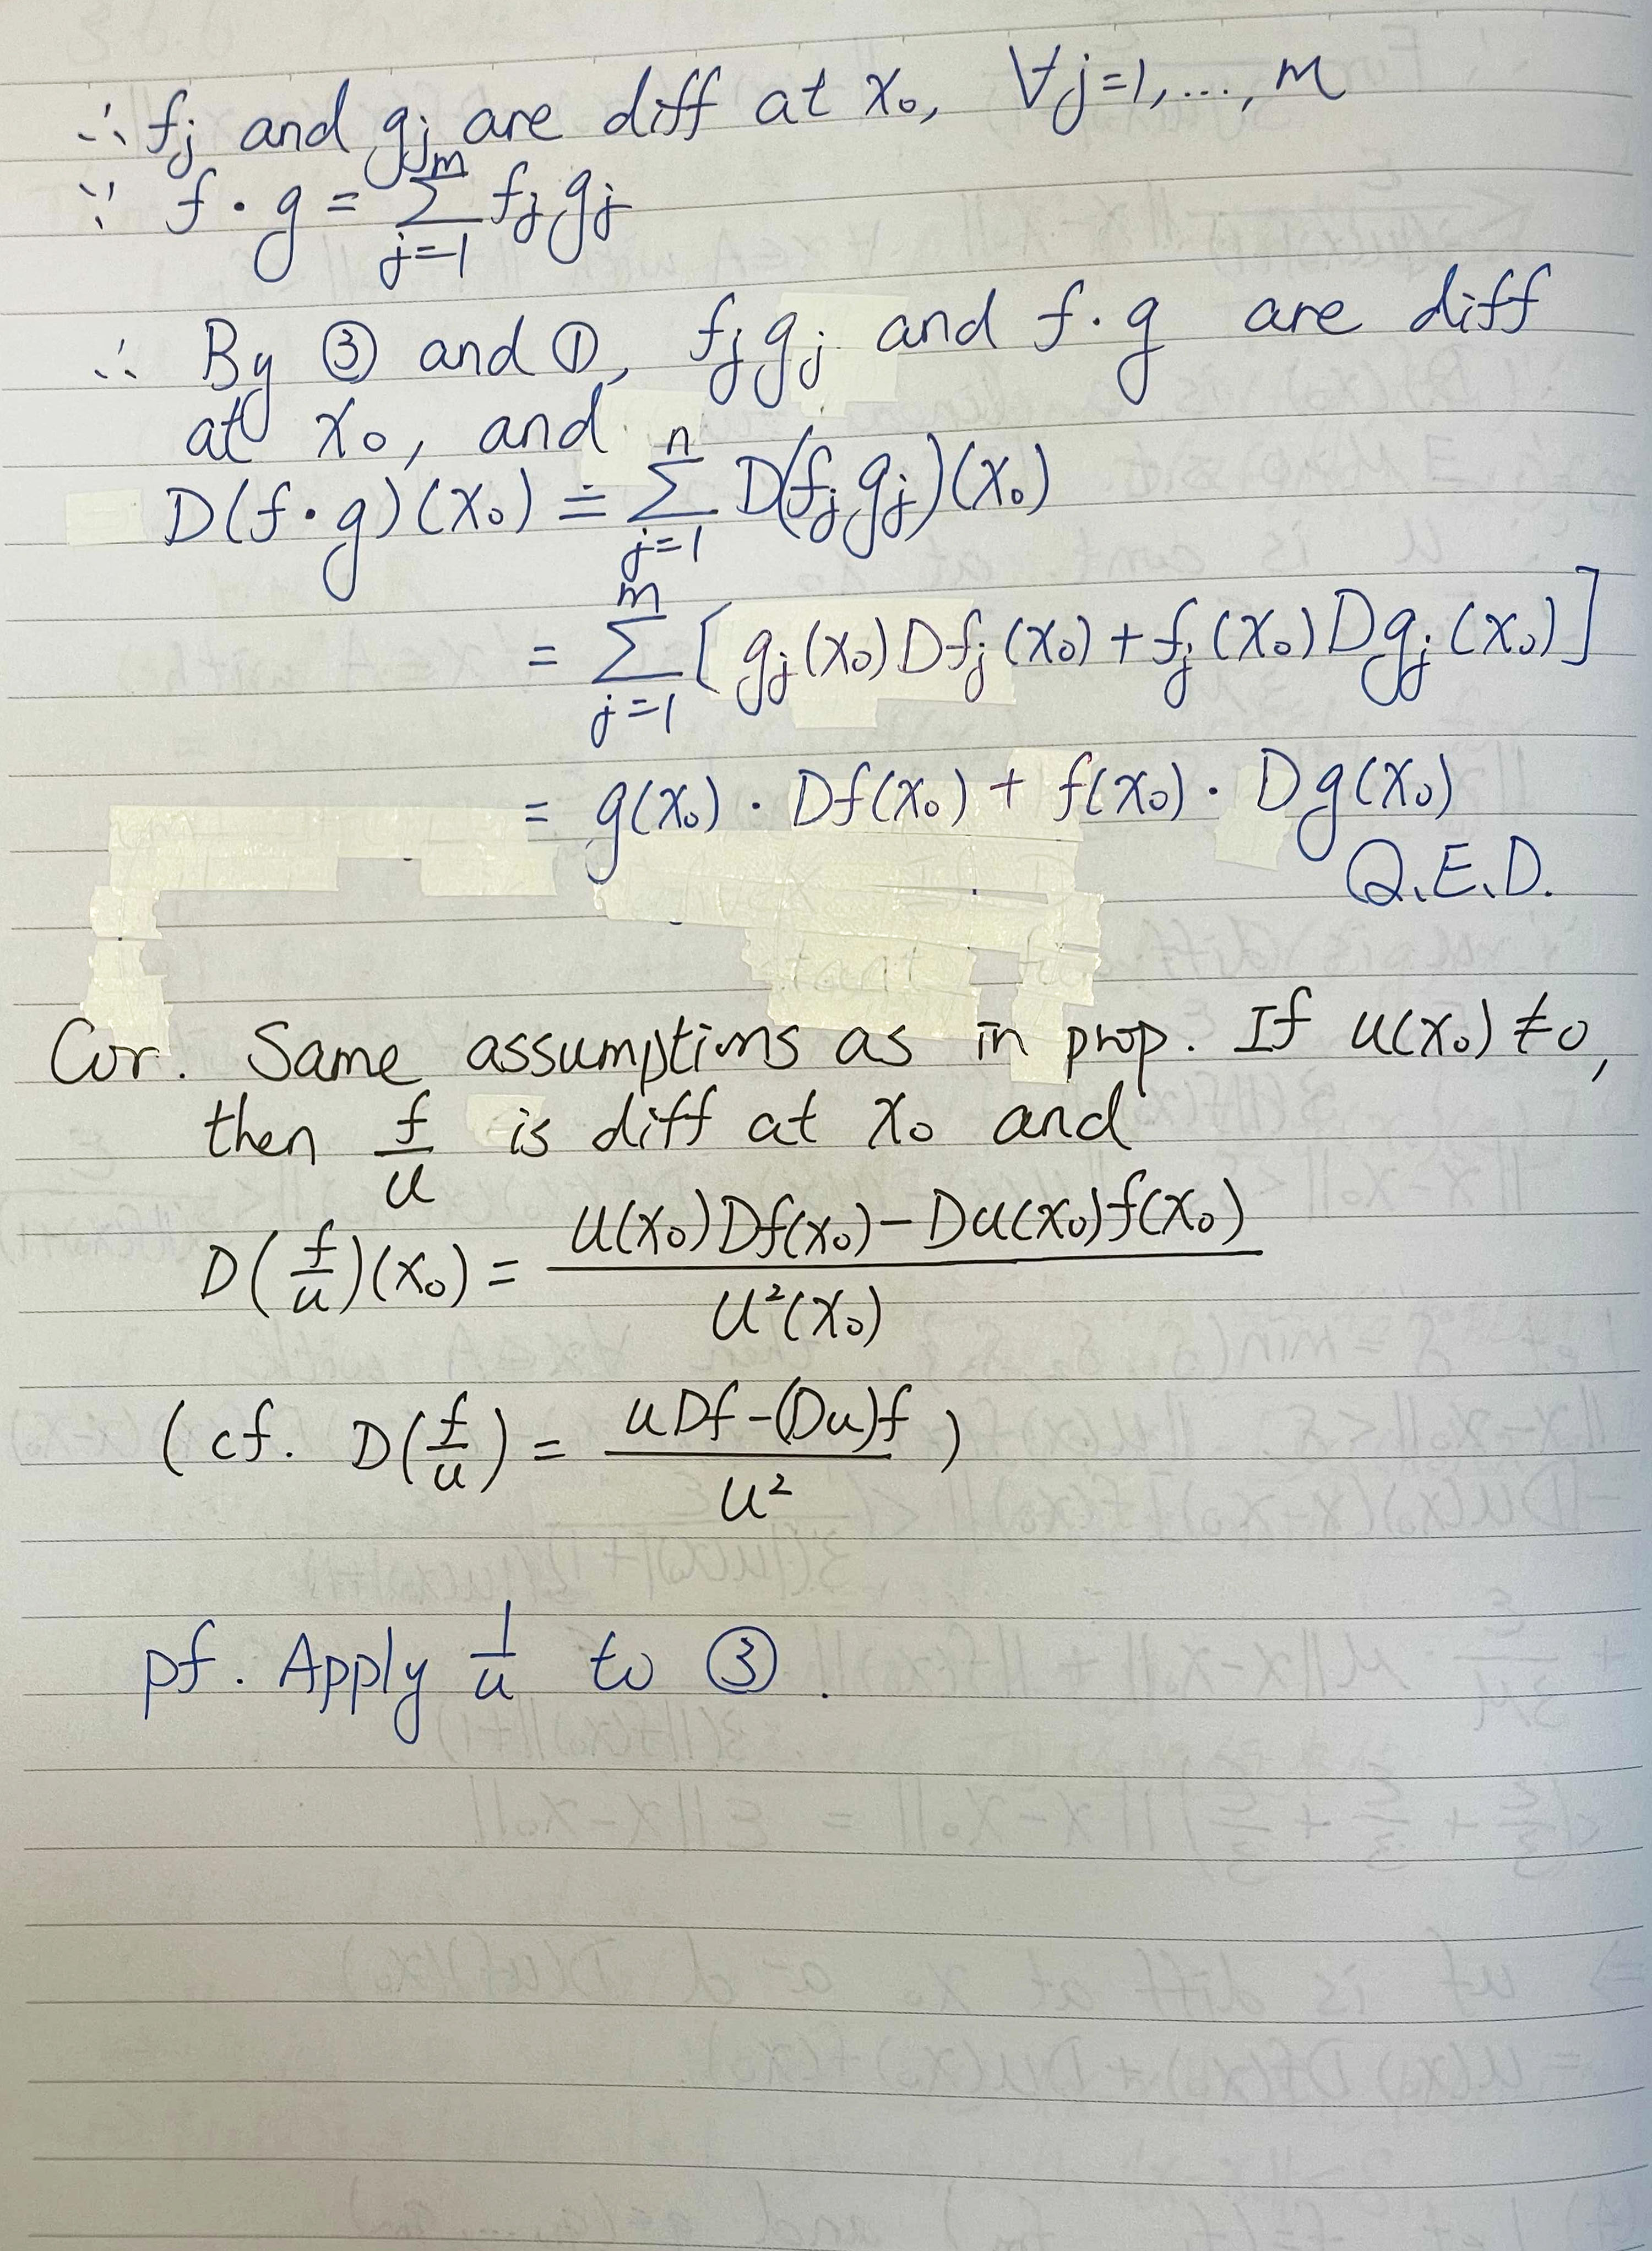 ∴ fj and gj are diff at x₀, ∀j=1,...,m
∵ f·g = ∑_{j=1}^{m} fj gj
∴ By ③ and ①, fj gj and f·g are diff
at x₀, and
D(f·g)(x₀) = ∑_{j=1}^{n} D(fj gj)(x₀)
= ∑_{j=1}^{m} [gj(x₀)Dfj(x₀)+fj(x₀)Dgj(x₀)]
= g(x₀)·Df(x₀) + f(x₀)·Dg(x₀)
Q.E.D.
Cor. Same assumptions as in prop. If u(x₀)≠0,
then f/u is diff at x₀ and
D(f/u)(x₀) = (u(x₀)Df(x₀)−Du(x₀)f(x₀))/(u²(x₀))
(cf. D(f/u) = (uDf−(Du)f)/(u²))
pf. Apply 1/u to ③.